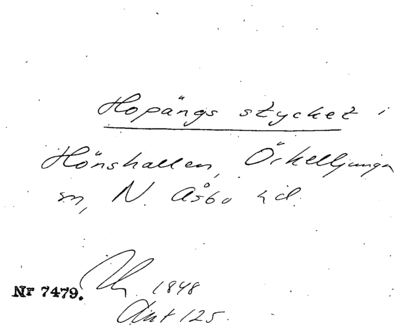 Hopängs stycket i
Hönshallen, Örkelljunga
sn, N. Åsbo hd.
Nr 7479.
1848
Akt 125.